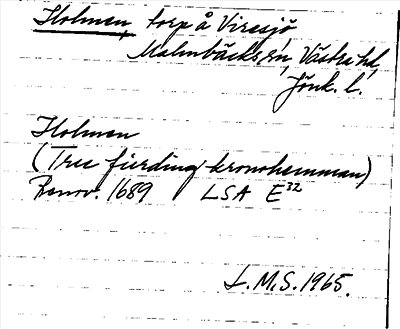 Holmen, torp å Viresjö,
Malmbäcks sn, Västra hd,
Jönk. l.
Holmen
(Tree fierding kronohemman)
Renov. 1689 LSA E³²
L.M.S. 1965.